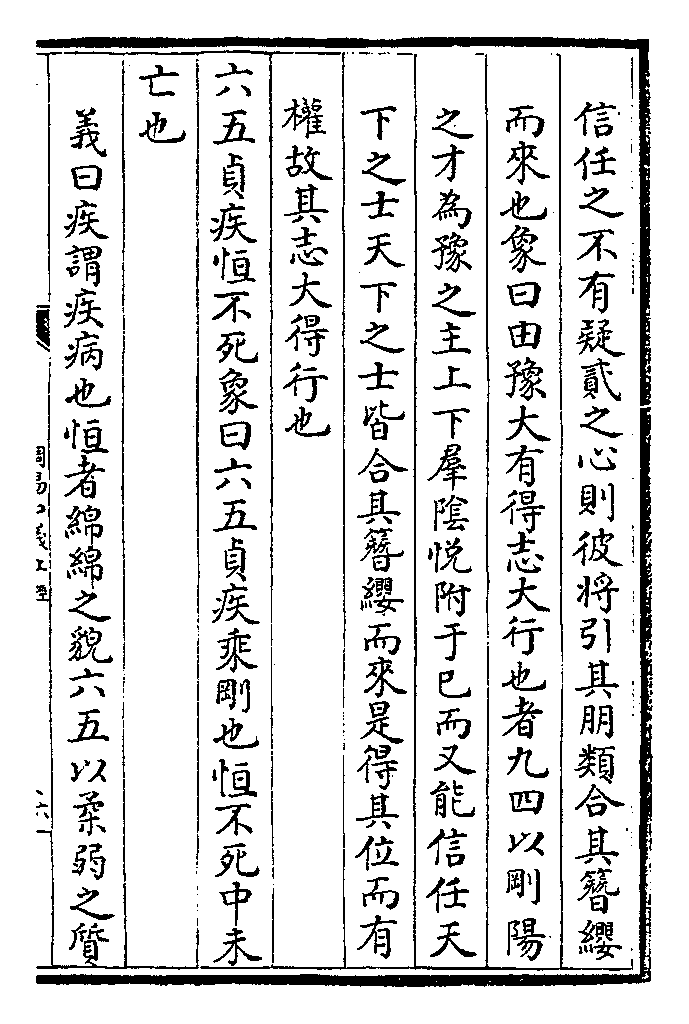 信任之不有疑貳之心則彼將引其朋類合其簪纓
而來也象曰由豫大有得志大行也者九四以剛陽
之才為豫之主上下羣陰悅附于已而又能信任天
下之士天下之士皆合其簪纓而來是得其位而有
權故其志大得行也
六五貞疾恒不死象曰六五貞疾乘剛也恒不死中未
亡也
義曰疾謂疾病也恒者綿綿之貌六五以柔弱之質
周易口義上經